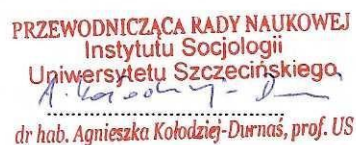 PRZEWODNICZĄCA RADY NAUKOWEJ
Instytutu Socjologii
Uniwersytetu Szczecińskiego
A. Kołodziej-D
dr hab. Agnieszka Kołodziej-Durnaś, prof. US